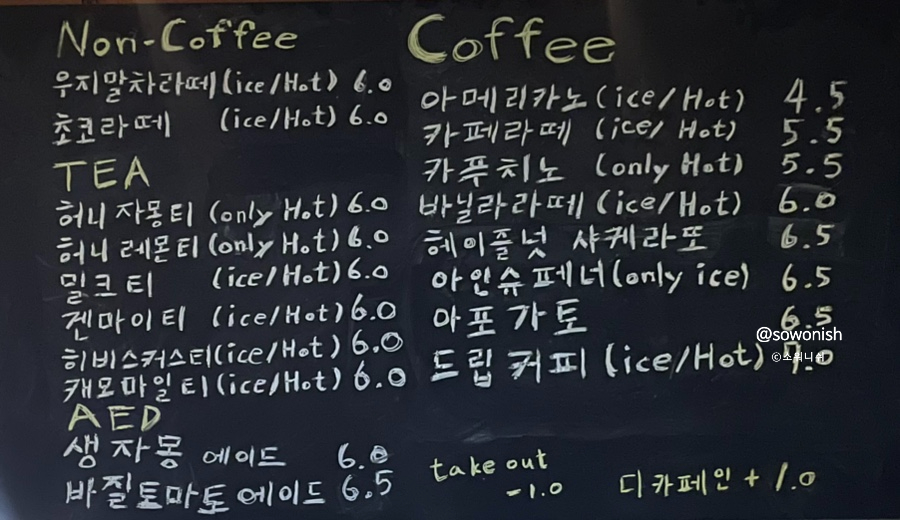 Non-Coffee
우지말차라떼(ice/Hot) 6.0
초코라떼 (ice/Hot) 6.0
TEA
허니자몽티 (only Hot) 6.0
허니레몬티 (only Hot) 6.0
밀크티 (ice/Hot) 6.0
젠마이티 (ice/Hot) 6.0
히비스커스티(ice/Hot) 6.0
캐모마일티(ice/Hot) 6.0
AED
생자몽 에이드 6.0
바질토마토에이드 6.5
Coffee
아메리카노(ice/Hot) 4.5
카페라떼 (ice/Hot) 5.5
카푸치노 (only Hot) 5.5
바닐라라떼(ice/Hot) 6.0
헤이즐넛 샤케라또 6.5
아인슈페너(only ice) 6.5
아포가토 6.5
드립커피(ice/Hot)
@sowonish
©소워니쉬
take out
-1.0
디카페인 + 1.0